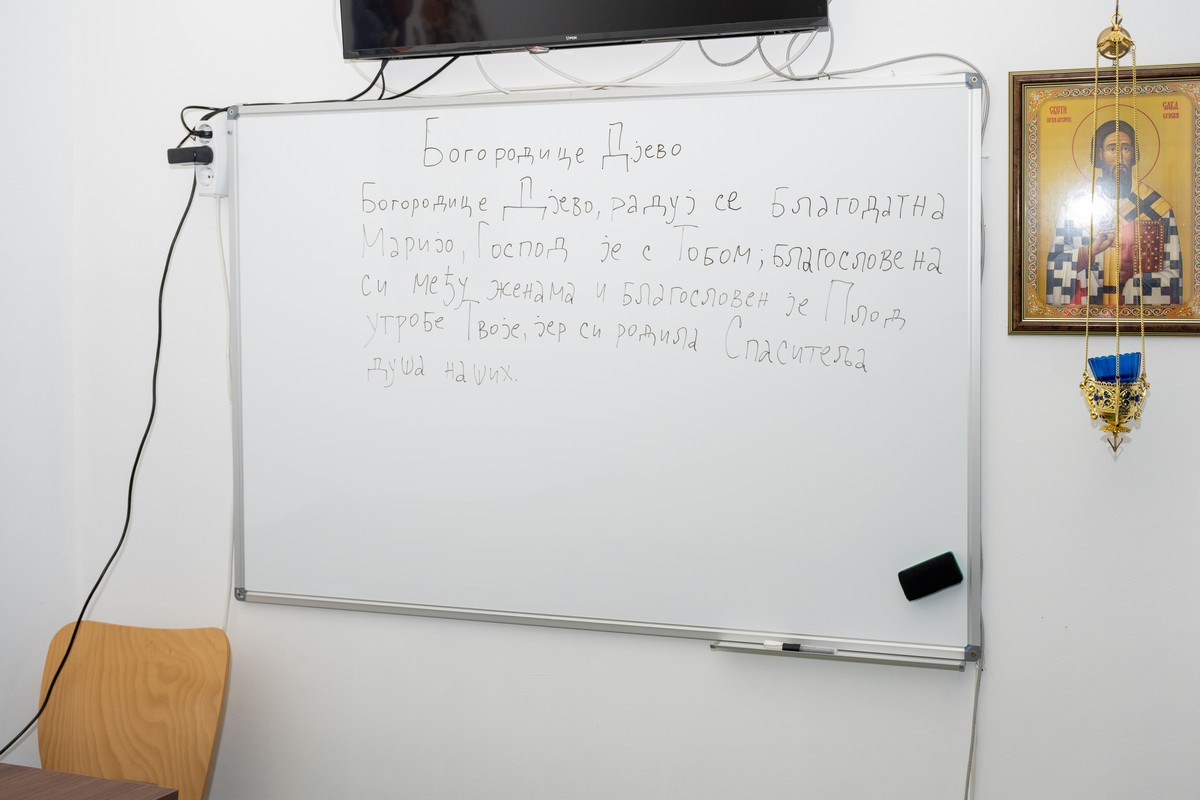 Богородице Дјево
Богородице Дјево, радуј се Благодатна
Маријо, Господ је с Тобом; благословена
си међу женама и благословен је Плод
утробе Твоје, јер си родила Спаситеља
душа наших.
СВЕТИ
САВА
СРПСКИ